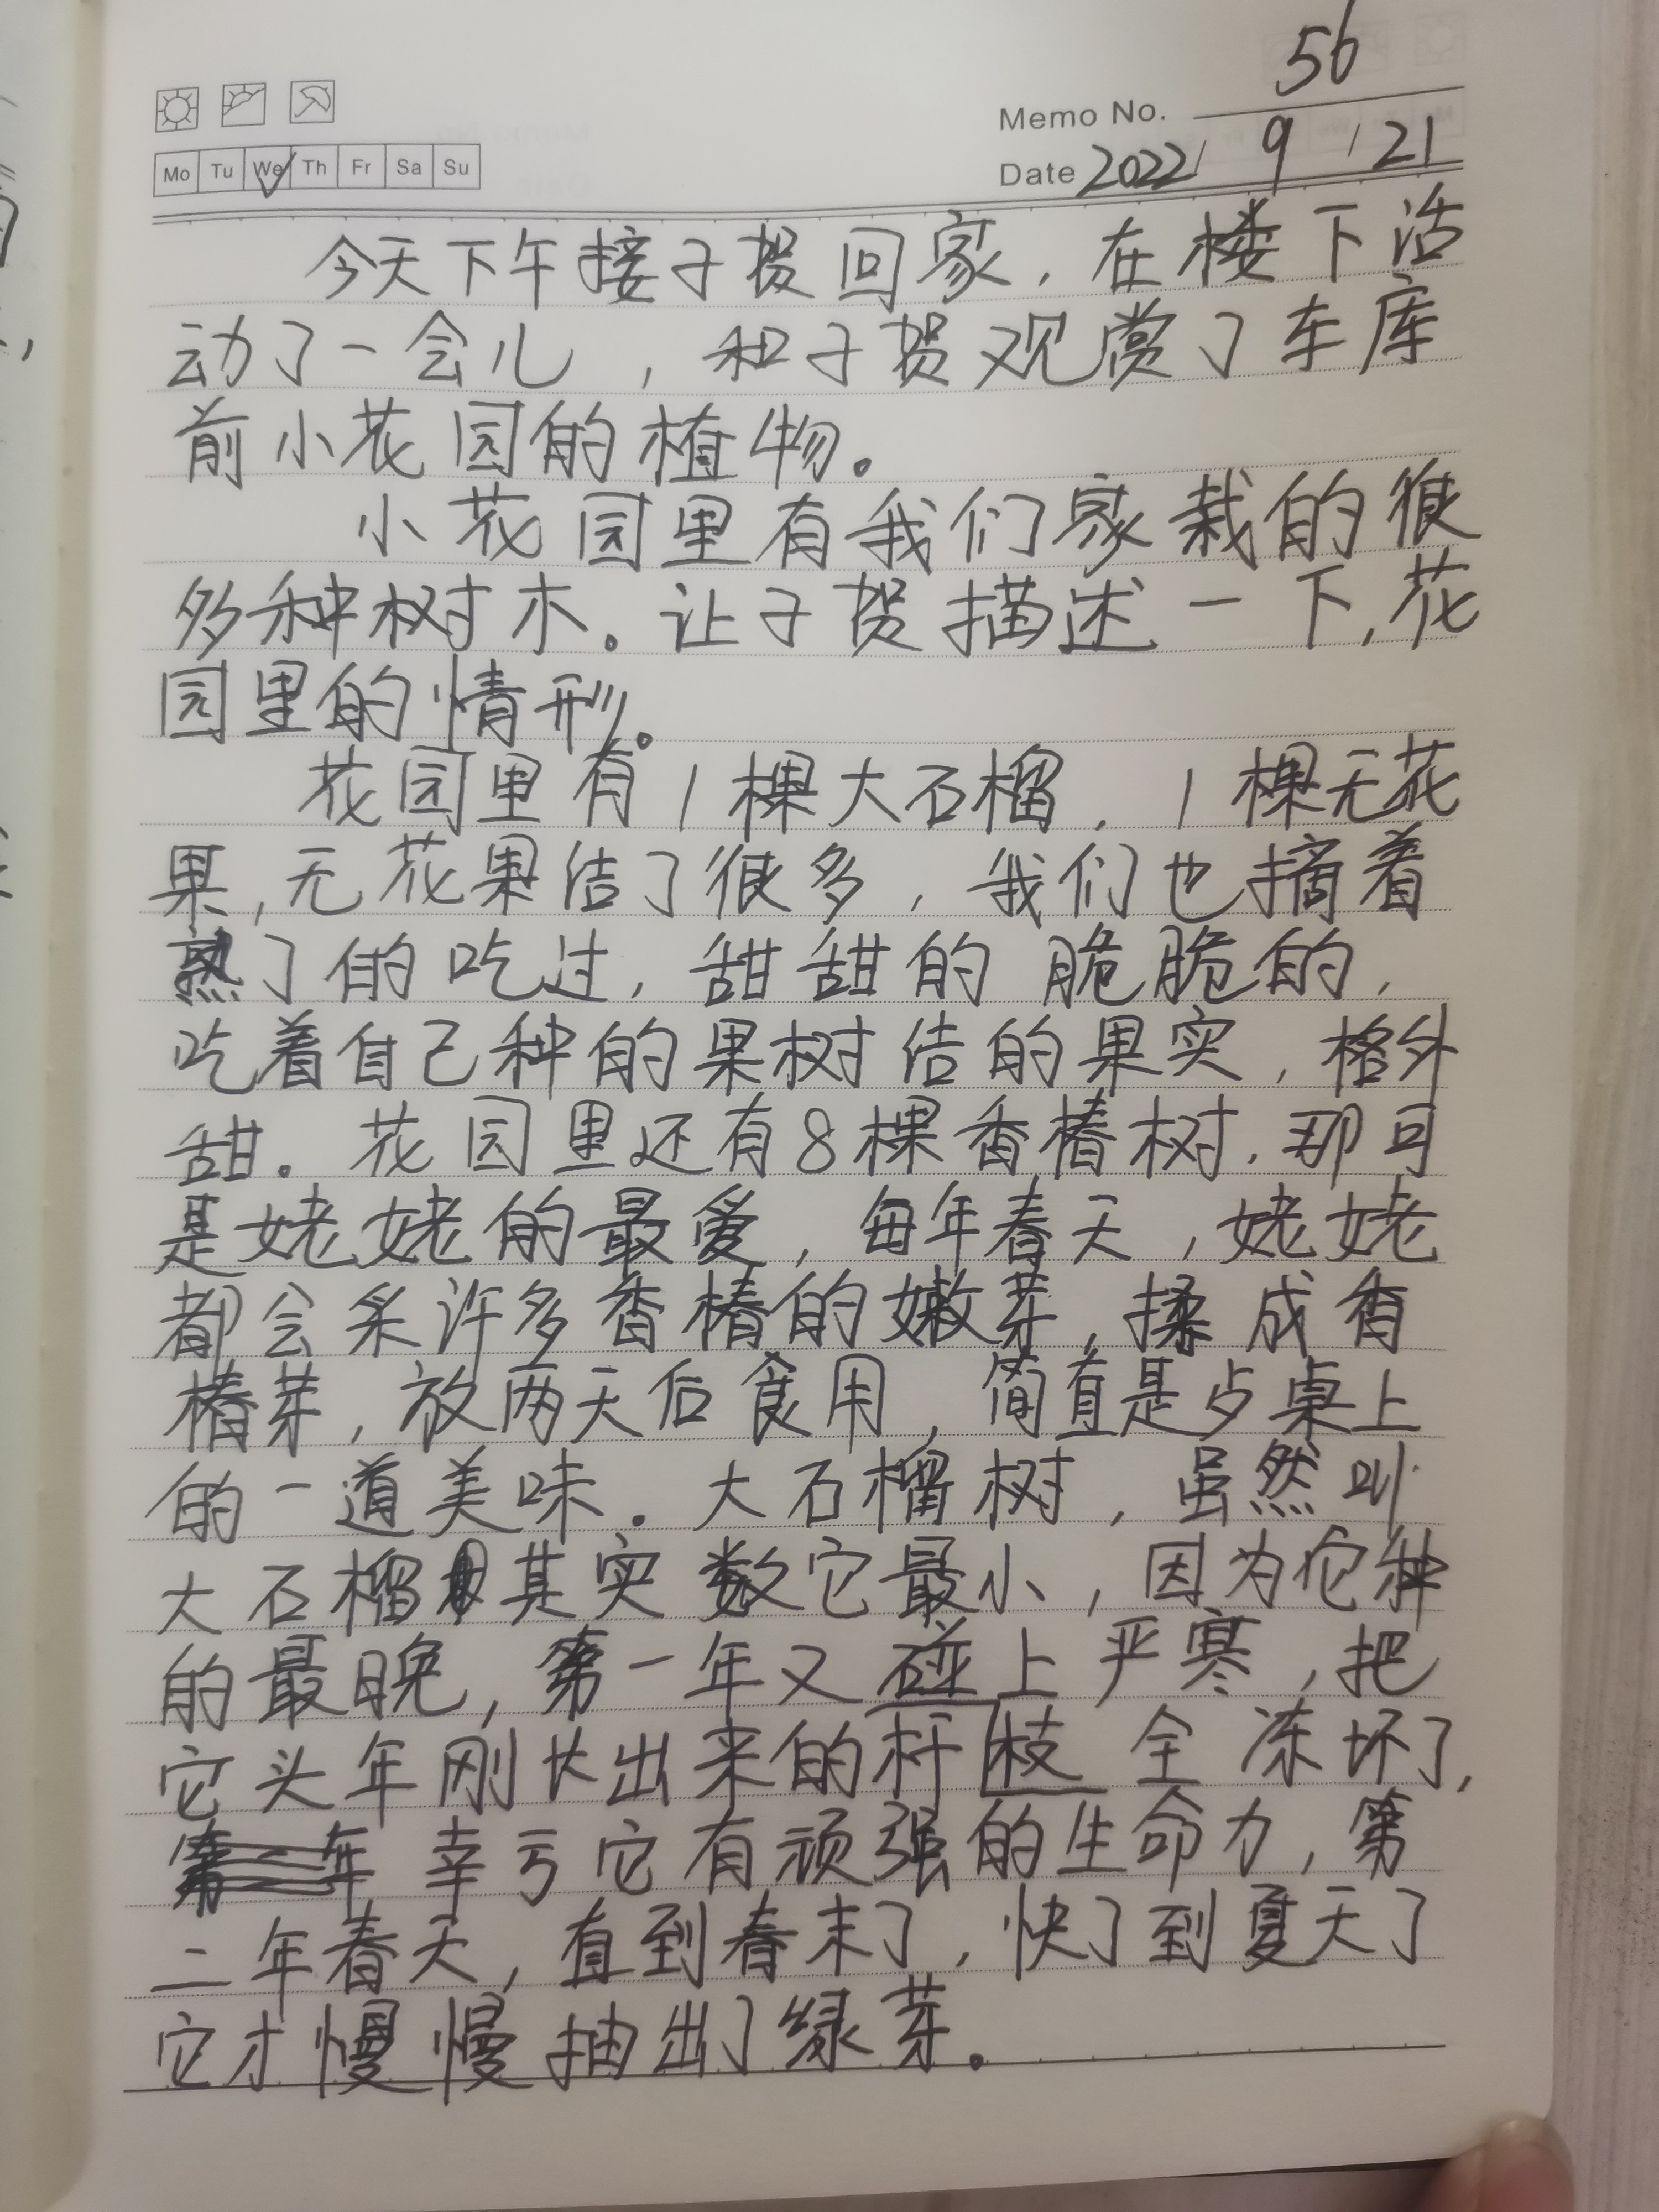 56
Memo No.
Mo Tu We Th Fr Sa Su
Date 2022 / 9 / 21
今天下午接子贺回家，在楼下活
动了一会儿，和子贺观赏了车库
前小花园的植物。
小花园里有我们家栽的很
多种树木。让子贺描述一下，花
园里的情形。
花园里有1棵大石榴，1棵无花
果，无花果结了很多，我们也摘着
熟了的吃过，甜甜的 脆脆的，
吃着自己种的果树结的果实，格外
甜。花园里还有8棵香椿树，那可
是姥姥的最爱，每年春天，姥姥
都会采许多香椿的嫩芽，揉成香
椿芽，放两天后食用，简直是歺桌上
的一道美味。大石榴树，虽然叫
大石榴 其实数它最小，因为它种
的最晚，第一年又碰上严寒，把
它头年刚长出来的杆枝全冻坏了，
幸亏它有顽强的生命力，第
二年春天，直到春末了，快了到夏天了
它才慢慢抽出了绿芽。